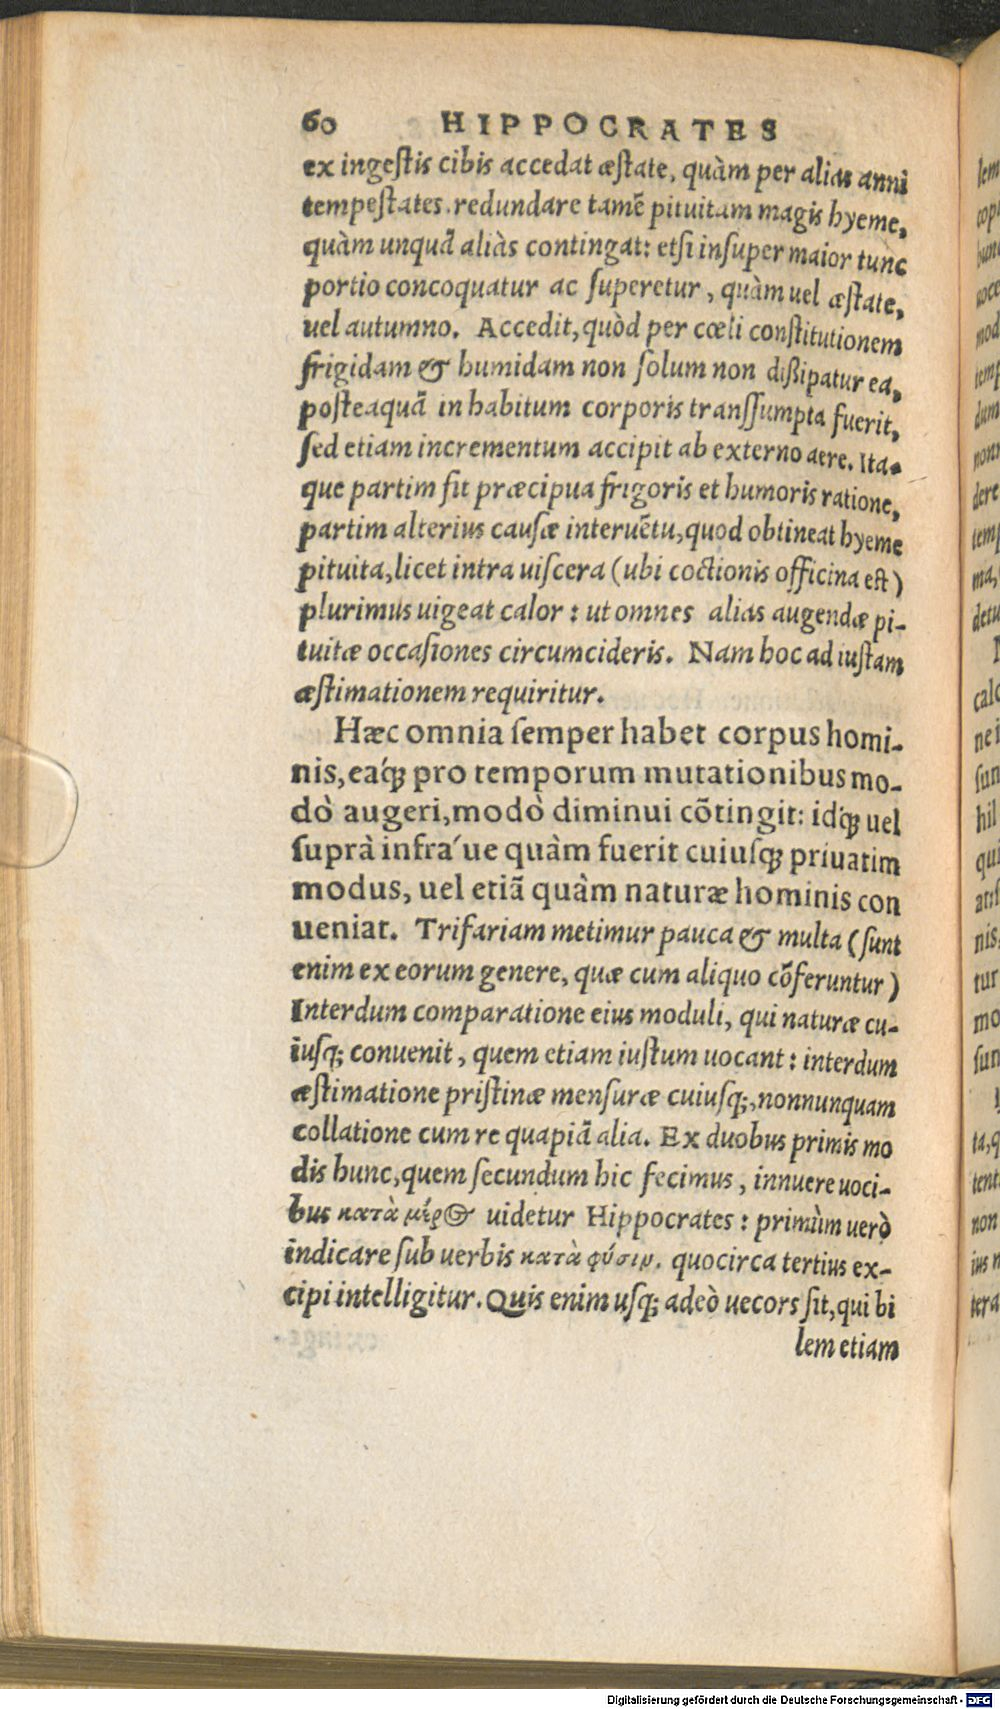 60 HIPPOCRATES
ex ingestis cibis accedat æstate, quàm per alias anni
tempestates. redundare tamē pituitam magis hyeme,
quàm unquā aliàs contingat: etsi insuper maior tunc
portio concoquatur ac superetur, quàm uel æstate,
uel autumno. Accedit, quòd per cœli constitutionem
frigidam & humidam non solum non dißipatur ea,
posteaquā in habitum corporis transsumpta fuerit,
sed etiam incrementum accipit ab externo aere. Ita-
que partim sit præcipua frigoris et humoris ratione,
partim alterius causæ interuētu, quod obtineat hyeme
pituita, licet intra uiscera (ubi coctionis officina est)
plurimus uigeat calor: ut omnes alias augendæ pi-
tuitæ occasiones circumcideris. Nam hoc ad iustam
æstimationem requiritur.
Hæc omnia semper habet corpus homi-
nis, eáq; pro temporum mutationibus mo-
dò augeri, modò diminui cōtingit: idq́; uel
suprà infra´ue quàm fuerit cuiusq; priuatim
modus, uel etiā quàm naturæ hominis con
ueniat. Trifariam metimur pauca & multa (sunt
enim ex eorum genere, quæ cum aliquo cōferuntur)
Interdum comparatione eius moduli, qui naturæ cu-
iusq; conuenit, quem etiam iustum uocant: interdum
æstimatione pristinæ mensuræ cuiusq;, nonnunquam
collatione cum re quapiā alia. Ex duobus primis mo
dis hunc, quem secundum hic fecimus, innuere uoci-
bus κατὰ μέρος uidetur Hippocrates: primùm uerò
indicare sub uerbis κατὰ φύσιν. quocirca tertius ex-
cipi intelligitur. Quis enim usq; adeò uecors sit, qui bi
lem etiam
Digitalisierung gefördert durch die Deutsche Forschungsgemeinschaft - DFG